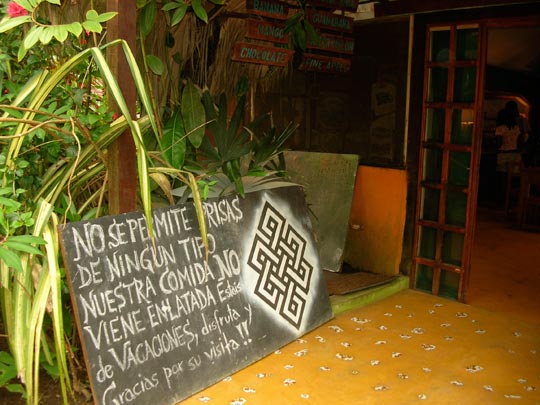 BANANA
MANGO
CHOCOLATE
GUANABANA
FINE APPLE
NO SE PERMITE PRISAS
DE NINGUN TIPO
NUESTRA COMIDA NO
VIENE ENLATADA Estás
de VACACIONES, disfruta y
Gracias por su visita!!